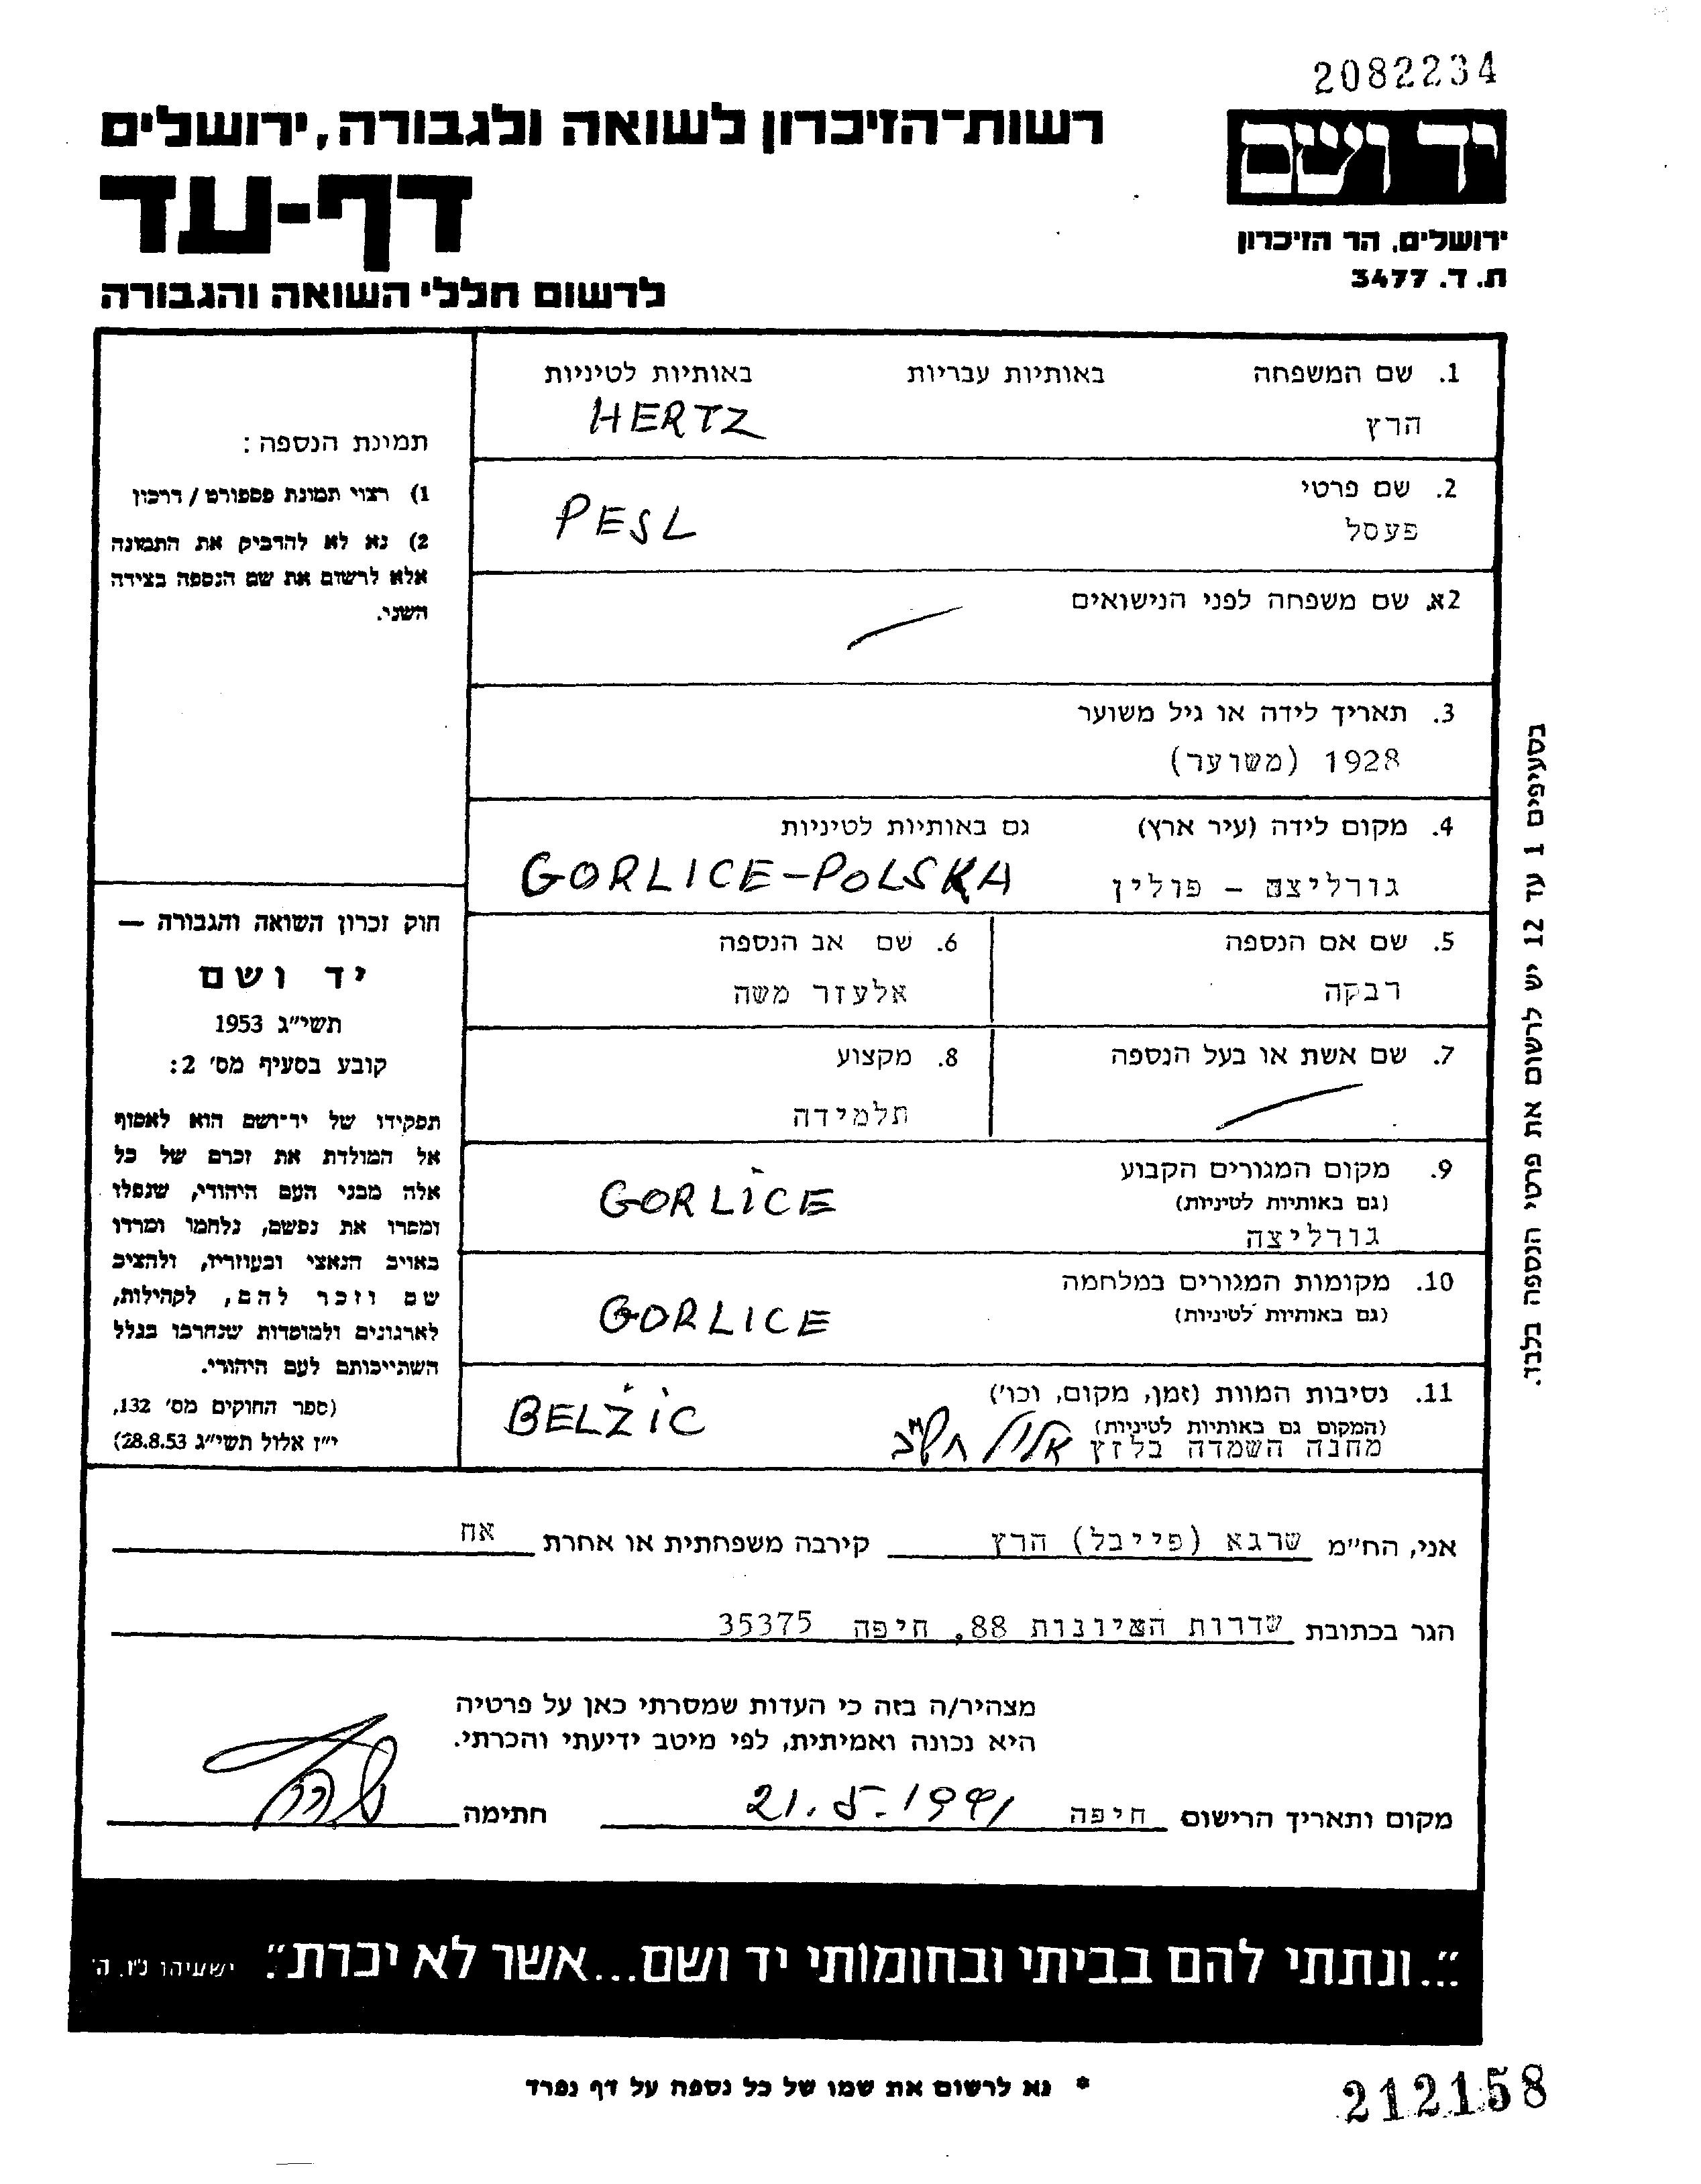 2082234
רשות־הזיכרון לשואה ולגבורה, ירושלים
יד ושם
דף-עד
ירושלים, הר הזיכרון
ת. ד. 3477
לרשום חללי השואה והגבורה
1. שם המשפחה באותיות עבריות באותיות לטיניות
הרץ HERTZ
2. שם פרטי
פעסל PESL
2א. שם משפחה לפני הנישואים
3. תאריך לידה או גיל משוער
1928 (משוער)
4. מקום לידה (עיר ארץ) גם באותיות לטיניות
גורליצה - פולין GORLICE-POLSKA
5. שם אם הנספה 6. שם אב הנספה
רבקה אלעזר משה
7. שם אשת או בעל הנספה 8. מקצוע
תלמידה
9. מקום המגורים הקבוע
(גם באותיות לטיניות) GORLICE
גורליצה
10. מקומות המגורים במלחמה
(גם באותיות לטיניות) GORLICE
11. נסיבות המוות (זמן, מקום, וכו')
(המקום גם באותיות לטיניות) BELŻIC
מחנה השמדה בלזץ אלול תש"ב
תמונת הנספה :
1) רצוי תמונת פספורט / דרכון
2) נא לא להדביק את התמונה
אלא לרשום את שם הנספה בצידה
השני.
חוק זכרון השואה והגבורה —
יד ושם
תשי"ג 1953
קובע בסעיף מס' 2:
תפקידו של יד־ושם הוא לאסוף
אל המולדת את זכרם של כל
אלה מבני העם היהודי, שנפלו
ומסרו את נפשם, נלחמו ומרדו
באויב הנאצי ובעוזריו, ולהציב
שם וזכר להם, לקהילות,
לארגונים ולמוסדות שנחרבו בגלל
השתייכותם לעם היהודי.
(ספר החוקים מס' 132,
י"ז אלול תשי"ג 28.8.53)
בסעיפים 1 עד 12 יש לרשום את פרטי הנספה בלבד.
אני, הח"מ שרגא (פייבל) הרץ קירבה משפחתית או אחרת אח
הגר בכתובת שדרות הציונות 88, חיפה 35375
מצהיר/ה בזה כי העדות שמסרתי כאן על פרטיה
היא נכונה ואמיתית, לפי מיטב ידיעתי והכרתי.
מקום ותאריך הרישום חיפה 21.5.1991 חתימה
"...ונתתי להם בביתי ובחומותי יד ושם...אשר לא יכרת". ישעיהו נ"ו, ה'
* נא לרשום את שמו של כל נספה על דף נפרד
212158